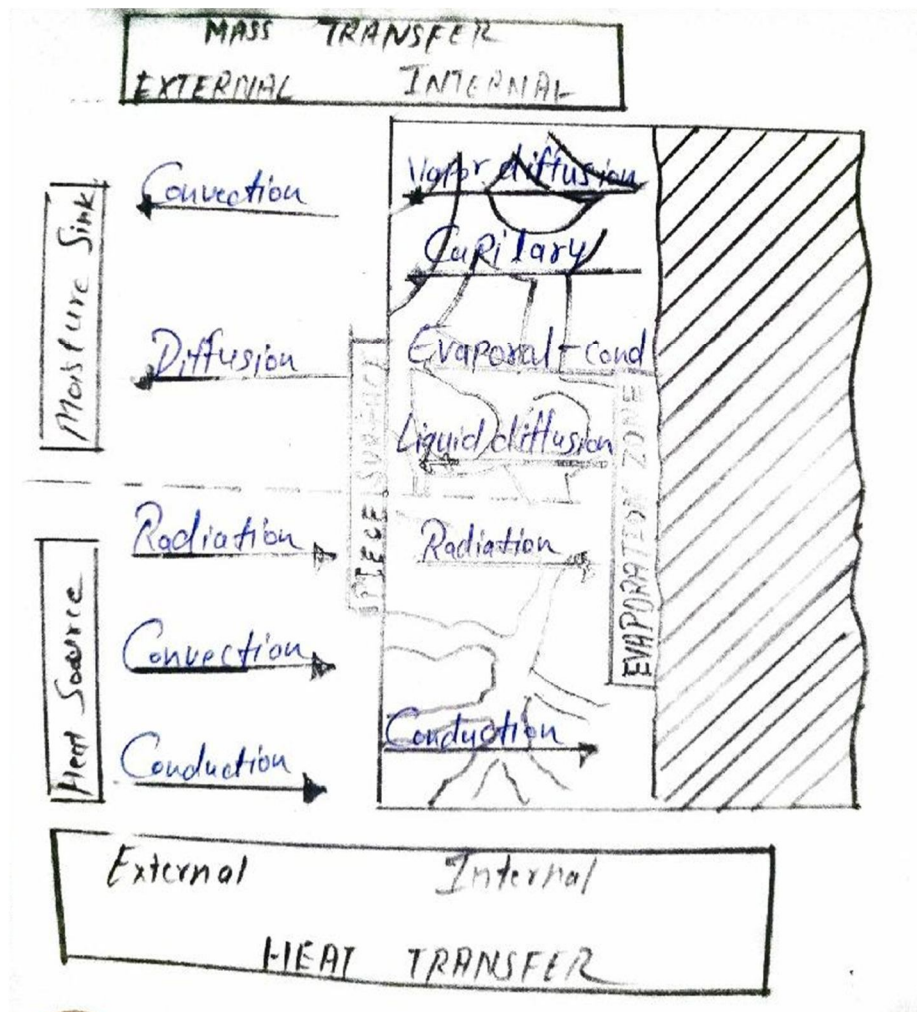 MASS TRANSFER
EXTERNAL INTERNAL
Moisture Sink
Convection
Diffusion
Vapor diffusion
Capilary
Evaporal-cond
Liquid diffusion
PIECE SURFACE
EVAPORATION ZONE
Heat Source
Radiation
Convection
Conduction
Radiation
Conduction
External Internal
HEAT TRANSFER